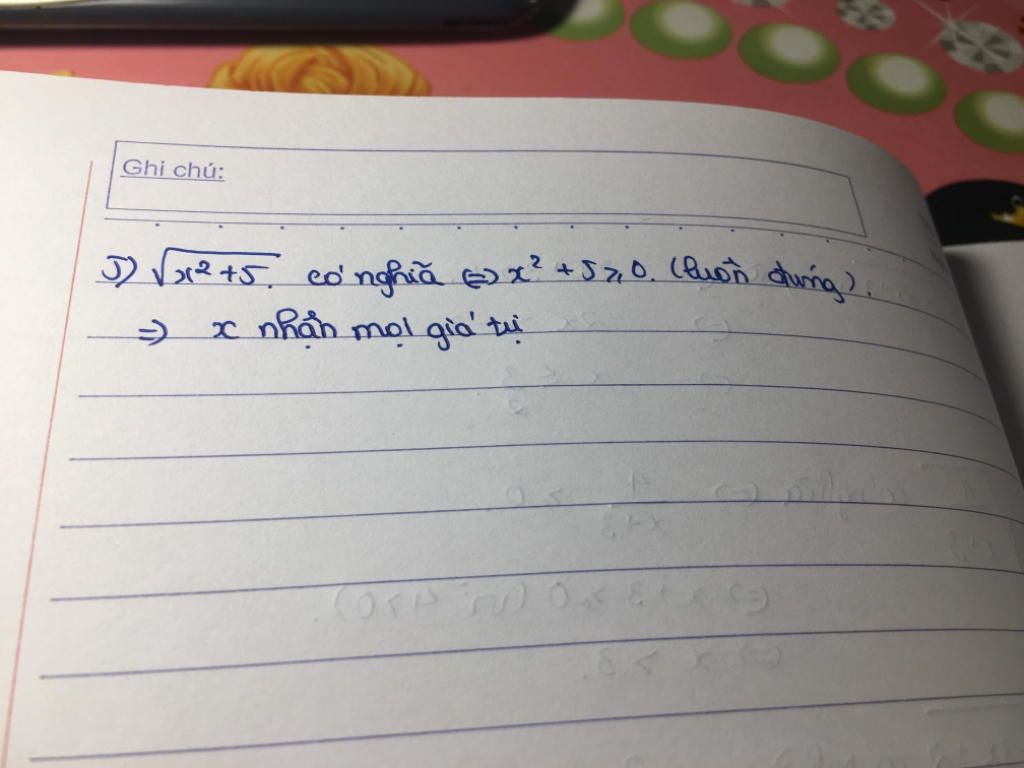 Ghi chú:
5) √x² + 5. có nghĩa ⇔ x² + 5 ≥ 0. (luôn đúng).
⇒ x nhận mọi giá trị